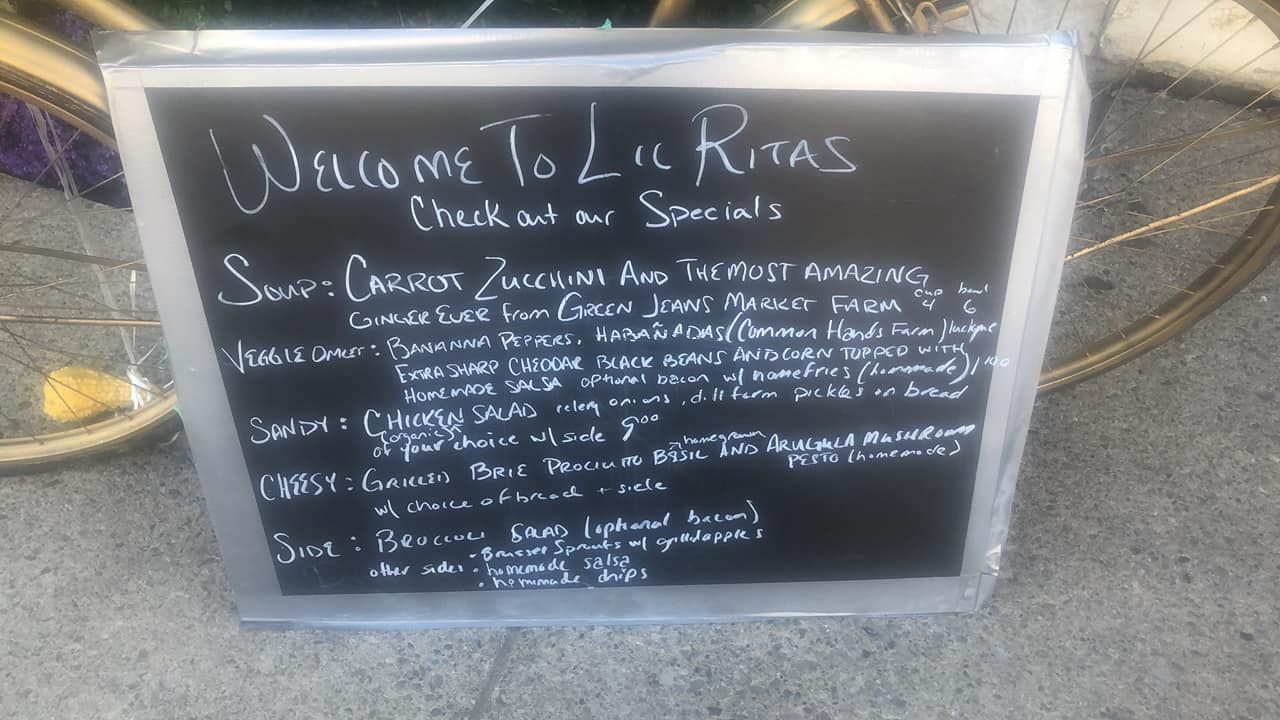 WELCOME TO LIL RITAS
Check out our Specials
SOUP: CARROT ZUCCHINI AND THE MOST AMAZING
GINGER EVER from GREEN JEANS MARKET FARM cup 4 bowl 6
VEGGIE OMLET: BANANNA PEPPERS, HABAÑADAS (Common Hands Farm)
EXTRA SHARP CHEDDAR BLACK BEANS AND CORN TOPPED WITH
HOMEMADE SALSA optional bacon w/ homefries (homemade)
SANDY: CHICKEN SALAD celery onions, dill farm pickles on bread
(organic)
of your choice w/ side 9.00
CHEESY: GRILLED BRIE PROCIUTTO BASIL AND ARUGULA MUSHROOM
homegrown
PESTO (homemade)
w/ choice of bread + side
SIDE: BROCCOLI SALAD (optional bacon)
• Brussel Sprouts w/ grilled apples
other sides • homemade salsa
• homemade chips